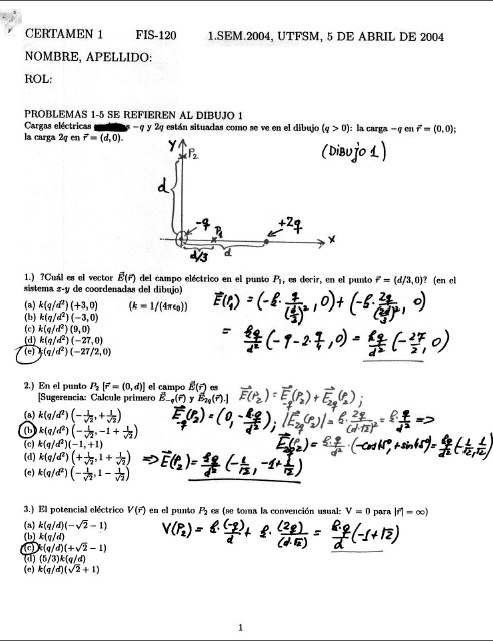 CERTAMEN 1 FIS-120 1.SEM.2004, UTFSM, 5 DE ABRIL DE 2004
NOMBRE, APELLIDO:
ROL:
PROBLEMAS 1-5 SE REFIEREN AL DIBUJO 1
Cargas eléctricas −q y 2q están situadas como se ve en el dibujo (q > 0): la carga −q en r⃗ = (0,0);
la carga 2q en r⃗ = (d, 0).
(DIBUJO 1)
Y
P₂
d
-q
P₁
+2q
X
d/3
d
1.) ?Cuál es el vector E⃗(r⃗) del campo eléctrico en el punto P₁, es decir, en el punto r⃗ = (d/3, 0)? (en el
sistema x-y de coordenadas del dibujo)
(a) k(q/d²)(+3, 0) (k = 1/(4πε₀))
(b) k(q/d²)(−3, 0)
(c) k(q/d²)(9, 0)
(d) k(q/d²)(−27, 0)
(e) k(q/d²)(−27/2, 0)
E⃗(P₁) = (-k·q/(d/3)², 0) + (-k·2q/(2d/3)², 0)
= kq/d² (-9-2·9/4, 0) = kq/d² (-27/2, 0)
2.) En el punto P₂ [r⃗ = (0, d)] el campo E⃗(r⃗) es
[Sugerencia: Calcule primero E⃗₋q(r⃗) y E⃗₂q(r⃗).]
(a) k(q/d²)(−1/√2, +1/√2)
(b) k(q/d²)(−1/√2, −1 + 1/√2)
(c) k(q/d²)(−1, +1)
(d) k(q/d²)(+1/√2, 1 + 1/√2)
(e) k(q/d²)(−1/√2, 1 − 1/√2)
E⃗(P₂) = E⃗₋q(P₂) + E⃗₂q(P₂);
E⃗₋q(P₂) = (0, -kq/d²); |E⃗₂q(P₂)| = k·2q/(d·√2)² = k·q/d² =>
E⃗₂q(P₂) = k·q/d²·(-cos45°, +sin45°) = kq/d² (-1/√2, 1/√2)
=> E⃗(P₂) = kq/d² (-1/√2, -1+1/√2)
3.) El potencial eléctrico V(r⃗) en el punto P₂ es (se toma la convención usual: V = 0 para |r⃗| = ∞)
(a) k(q/d)(−√2 − 1)
(b) k(q/d)
(c) k(q/d)(+√2 − 1)
(d) (5/3)k(q/d)
(e) k(q/d)(√2 + 1)
V(P₂) = k·(-q)/d + k·(2q)/(d·√2) = k·q/d (-1+√2)
1